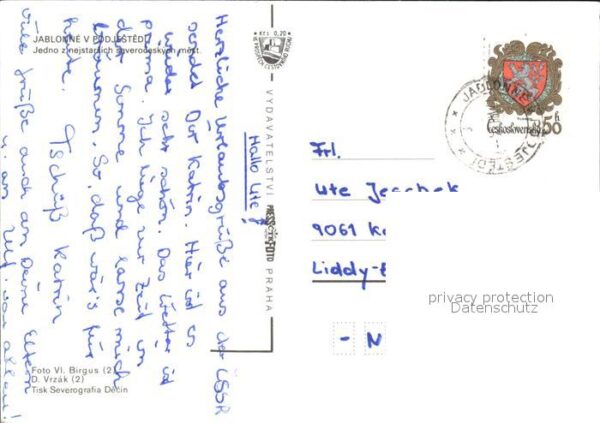 JABLONNÉ V PODJEŠTĚDÍ
Jedno z nejstarších severočeských měst
Hallo Ute!
Herzliche Urlaubsgrüße aus der ČSSR
sendet Dir Katrin. Hier ist es
wieder sehr schön. Das Wetter ist
prima. Ich liege zur Zeit in
der Sonne und lasse mich
bräunen. So, daß wär's für
heute. Tschüß Katrin
Viele Grüße auch an Deine Eltern
u. an Ulf. von allen!
Foto Vl. Birgus (2)
D. Vrzák (2)
Tisk Severografia Děčín
VYDAVATELSTVÍ PRESSFOTO PRAHA
Kčs 0,20
Československo 50 h
JABLONNÉ
Frl.
Ute Jeschek
9061 K
Liddy-
- N
privacy protection
Datenschutz